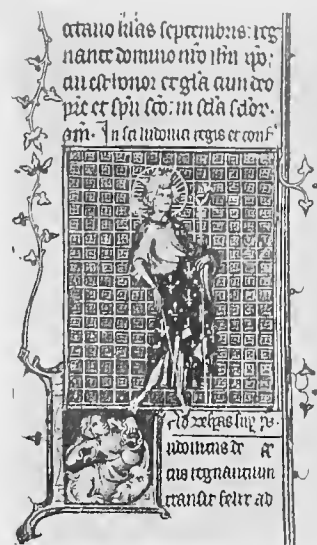 octavo klas septembris: reg
nante domino nro ihu xpo:
cui est honor et gla cum deo
pre et spu sco: in scla sclor.
am. In sci ludovici regis et conf
Ad vespas sup ps.
udovicus de
cus regnantium
transit felix ad